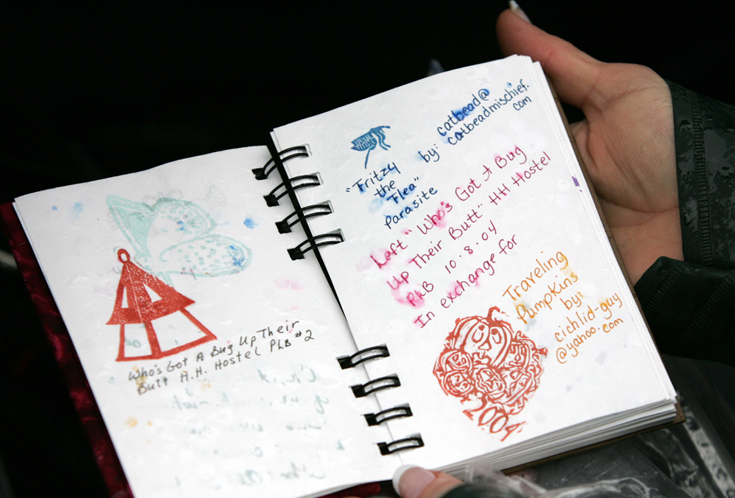 Who's Got A Bug Up Their
Butt H.H. Hostel PLB #2
"Fritzy
the
Flea"
Parasite
by: catbead@
catbeadmischief.
com
Left "Who's Got A Bug
Up Their Butt" HH Hostel
PLB 10.8.04
In exchange for
Traveling
Pumpkins
by:
cichlid-guy
@yahoo.com
2004